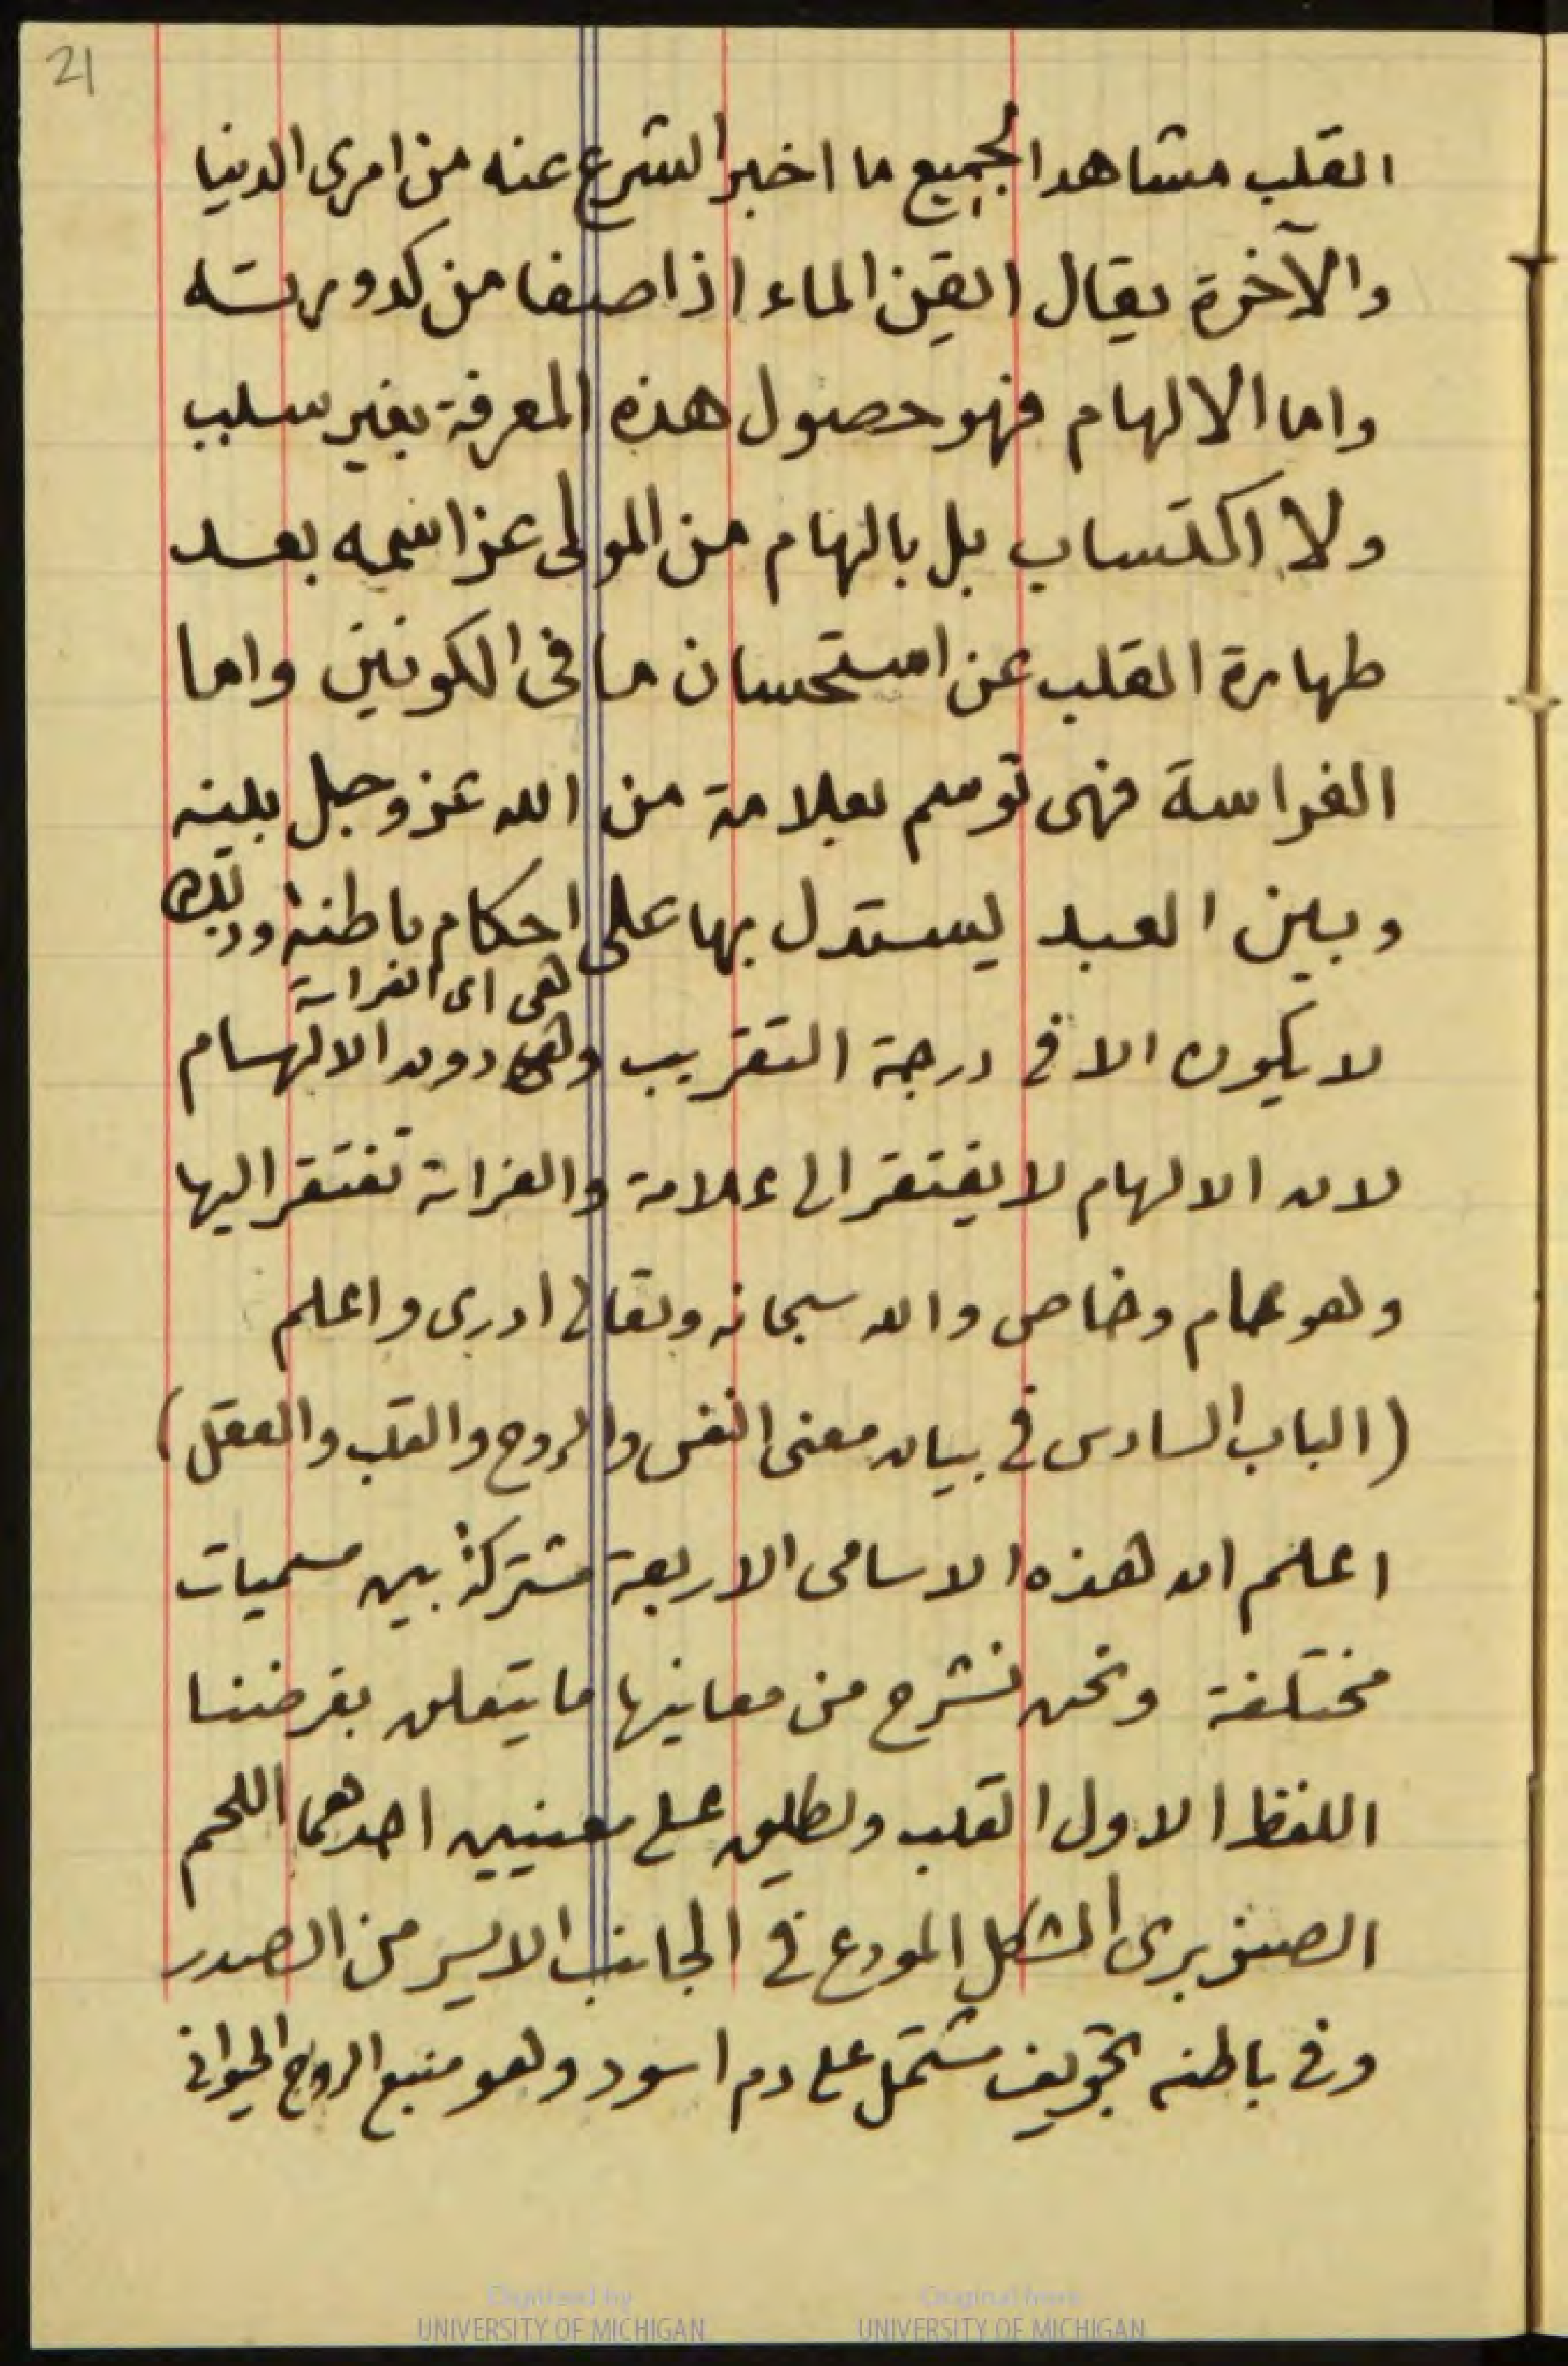 21
القلب مشاهدا لجميع ما اخبر الشرع عنه من امرى الدنيا
والآخرة يقال ايقن الماء اذا صفا من كدورته
واما الالهام فهو حصول هذه المعرفة بغير سبب
ولا اكتساب بل بالهام من المولى عز اسمه بعد
طهارة القلب عن استحسان ما فى الكونين واما
الفراسة فهى توسم بعلامة من الله عز وجل بينه
وبين العبد ليستدل بها على احكام باطنة وذلك
هى اى الفراسة
لا يكون الا فى درجة التقريب وهى دون الالهام
لان الالهام لا يفتقر الى علامة والفراسة تفتقر اليها
وهو عام وخاص والله سبحانه وتعالى ادرى واعلم
(الباب السادس فى بيان معنى النفس والروح والقلب والعقل)
اعلم ان هذه الاسامى الاربعة مشتركة بين مسميات
مختلفة ونحن نشرح من معانيها ما يتعلق بغرضنا
اللفظ الاول القلب ويطلق على معنيين احدهما اللحم
الصنوبرى الشكل المودع فى الجانب الايسر من الصدر
وفى باطنه تجويف مشتمل على دم اسود وهو منبع الروح الحيوانى
Digitized by
UNIVERSITY OF MICHIGAN
Original from
UNIVERSITY OF MICHIGAN